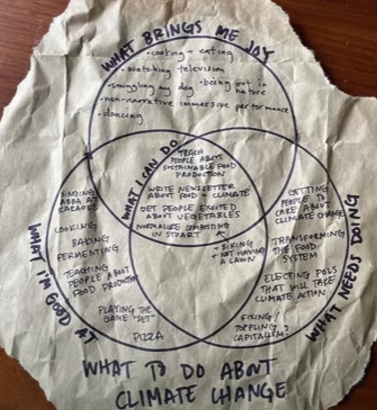 WHAT BRINGS ME JOY
• cooking + eating
• watching television
• being out in nature
• snuggling my dog
• non-narrative immersive performance
• dancing
WHAT I CAN DO
TEACH
PEOPLE ABOUT
SUSTAINABLE FOOD
PRODUCTION
WRITE NEWSLETTER
ABOUT FOOD + CLIMATE
GET PEOPLE EXCITED
ABOUT VEGETABLES
NORMALIZE COMPOSTING
IN STUART
+ BIKING
+ NOT HAVING
A LAWN
WHAT I'M GOOD AT
SINGING
ABBA AT
KARAOKE
COOKING
BAKING
FERMENTING
TEACHING
PEOPLE ABOUT
FOOD PRODUCTION
PLAYING THE
GAME "SET"
PIZZA
WHAT NEEDS DOING
GETTING
PEOPLE TO
CARE ABOUT
CLIMATE CHANGE
TRANSFORMING
THE FOOD
SYSTEM
ELECTING POLS
THAT WILL TAKE
CLIMATE ACTION
FIXING/
TOPPLING
CAPITALISM?
WHAT TO DO ABOUT
CLIMATE CHANGE